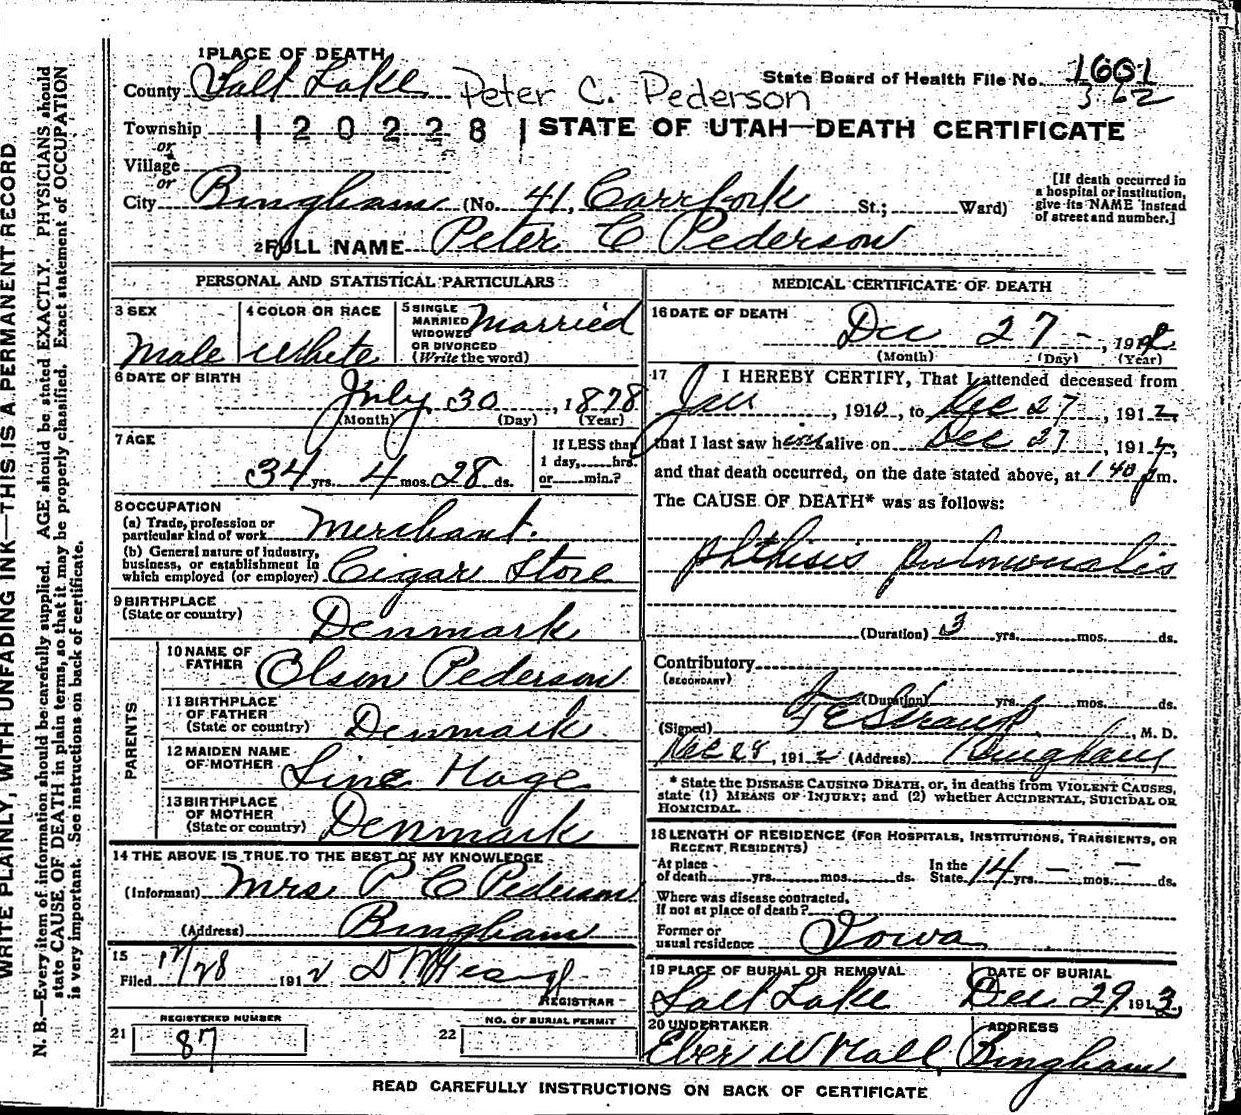 1 PLACE OF DEATH
County Salt Lake Peter C. Pederson State Board of Health File No. 1661
362
Township 1 2 0 2 2 8 STATE OF UTAH—DEATH CERTIFICATE
or
Village
or
City Bingham (No. 41, Carrfork St.; Ward)
[If death occurred in
a hospital or institution,
give its NAME instead
of street and number.]
2 FULL NAME Peter C Pederson
PERSONAL AND STATISTICAL PARTICULARS
3 SEX
Male
4 COLOR OR RACE
White
5 SINGLE
MARRIED
WIDOWED
OR DIVORCED
(Write the word)
Married
6 DATE OF BIRTH
July 30, 1878
(Month) (Day) (Year)
7 AGE
34 yrs. 4 mos. 28 ds.
If LESS than
1 day, hrs.
or min.?
8 OCCUPATION
(a) Trade, profession or
particular kind of work Merchant.
(b) General nature of industry,
business, or establishment in
which employed (or employer) Cigar Store
9 BIRTHPLACE
(State or country) Denmark
PARENTS
10 NAME OF
FATHER Olson Pederson
11 BIRTHPLACE
OF FATHER
(State or country) Denmark
12 MAIDEN NAME
OF MOTHER Line Hage
13 BIRTHPLACE
OF MOTHER
(State or country) Denmark
14 THE ABOVE IS TRUE TO THE BEST OF MY KNOWLEDGE
(Informant) Mrs P C Pederson
(Address) Bingham
15
Filed 12/28 1912
REGISTRAR
REGISTERED NUMBER
21 87
NO. OF BURIAL PERMIT
22
MEDICAL CERTIFICATE OF DEATH
16 DATE OF DEATH
Dec 27 -, 1912
(Month) (Day) (Year)
17 I HEREBY CERTIFY, That I attended deceased from
Jan, 1910, to Dec 27, 1912,
that I last saw him alive on Dec 27, 191
and that death occurred, on the date stated above, at 1 40 pm.
The CAUSE OF DEATH* was as follows:
Phthisis pulmonalis
(Duration) 3 yrs. mos. ds.
Contributory
(SECONDARY)
(Duration) yrs. mos. ds.
(Signed) F E Straup, M. D.
Dec 28, 1912 (Address) Bingham
* State the DISEASE CAUSING DEATH, or, in deaths from VIOLENT CAUSES,
state (1) MEANS OF INJURY; and (2) whether ACCIDENTAL, SUICIDAL OR
HOMICIDAL.
18 LENGTH OF RESIDENCE (FOR HOSPITALS, INSTITUTIONS, TRANSIENTS, OR
RECENT RESIDENTS)
At place
of death yrs. mos. ds.
In the
State 14 yrs. — mos. — ds.
Where was disease contracted,
if not at place of death?
Former or
usual residence Iowa
19 PLACE OF BURIAL OR REMOVAL
Salt Lake
DATE OF BURIAL
Dec 29 1913
20 UNDERTAKER
Eber W Hall
ADDRESS
Bingham
READ CAREFULLY INSTRUCTIONS ON BACK OF CERTIFICATE
WRITE PLAINLY, WITH UNFADING INK—THIS IS A PERMANENT RECORD.
N. B.—Every item of information should be carefully supplied. AGE should be stated EXACTLY. PHYSICIANS should
state CAUSE OF DEATH in plain terms, so that it may be properly classified. Exact statement of OCCUPATION
is very important. See instructions on back of certificate.